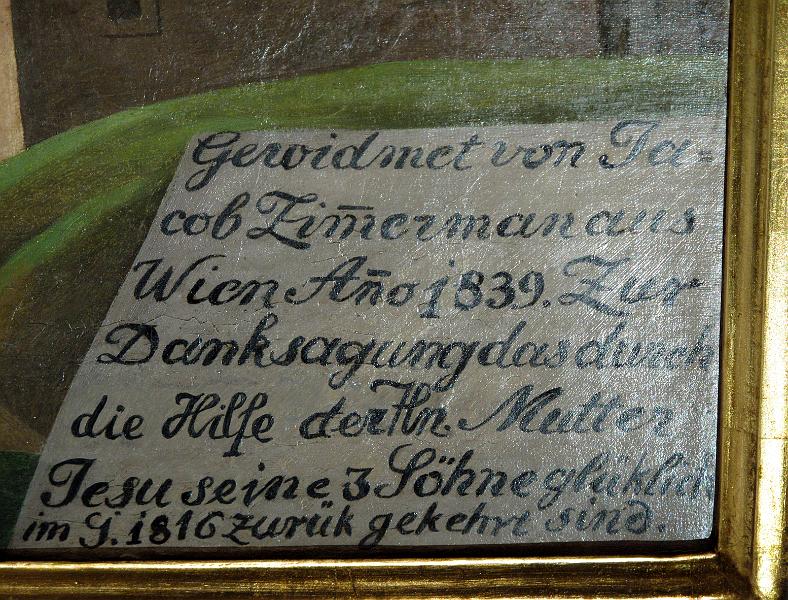 Gewidmet von Ja=
cob Zim̄erman aus
Wien Año 1839. Zur
Danksagung das durch
die Hilfe der Hn. Mutter
Jesu seine 3 Söhne glüklich
im J. 1816 zurük gekehrt sind.